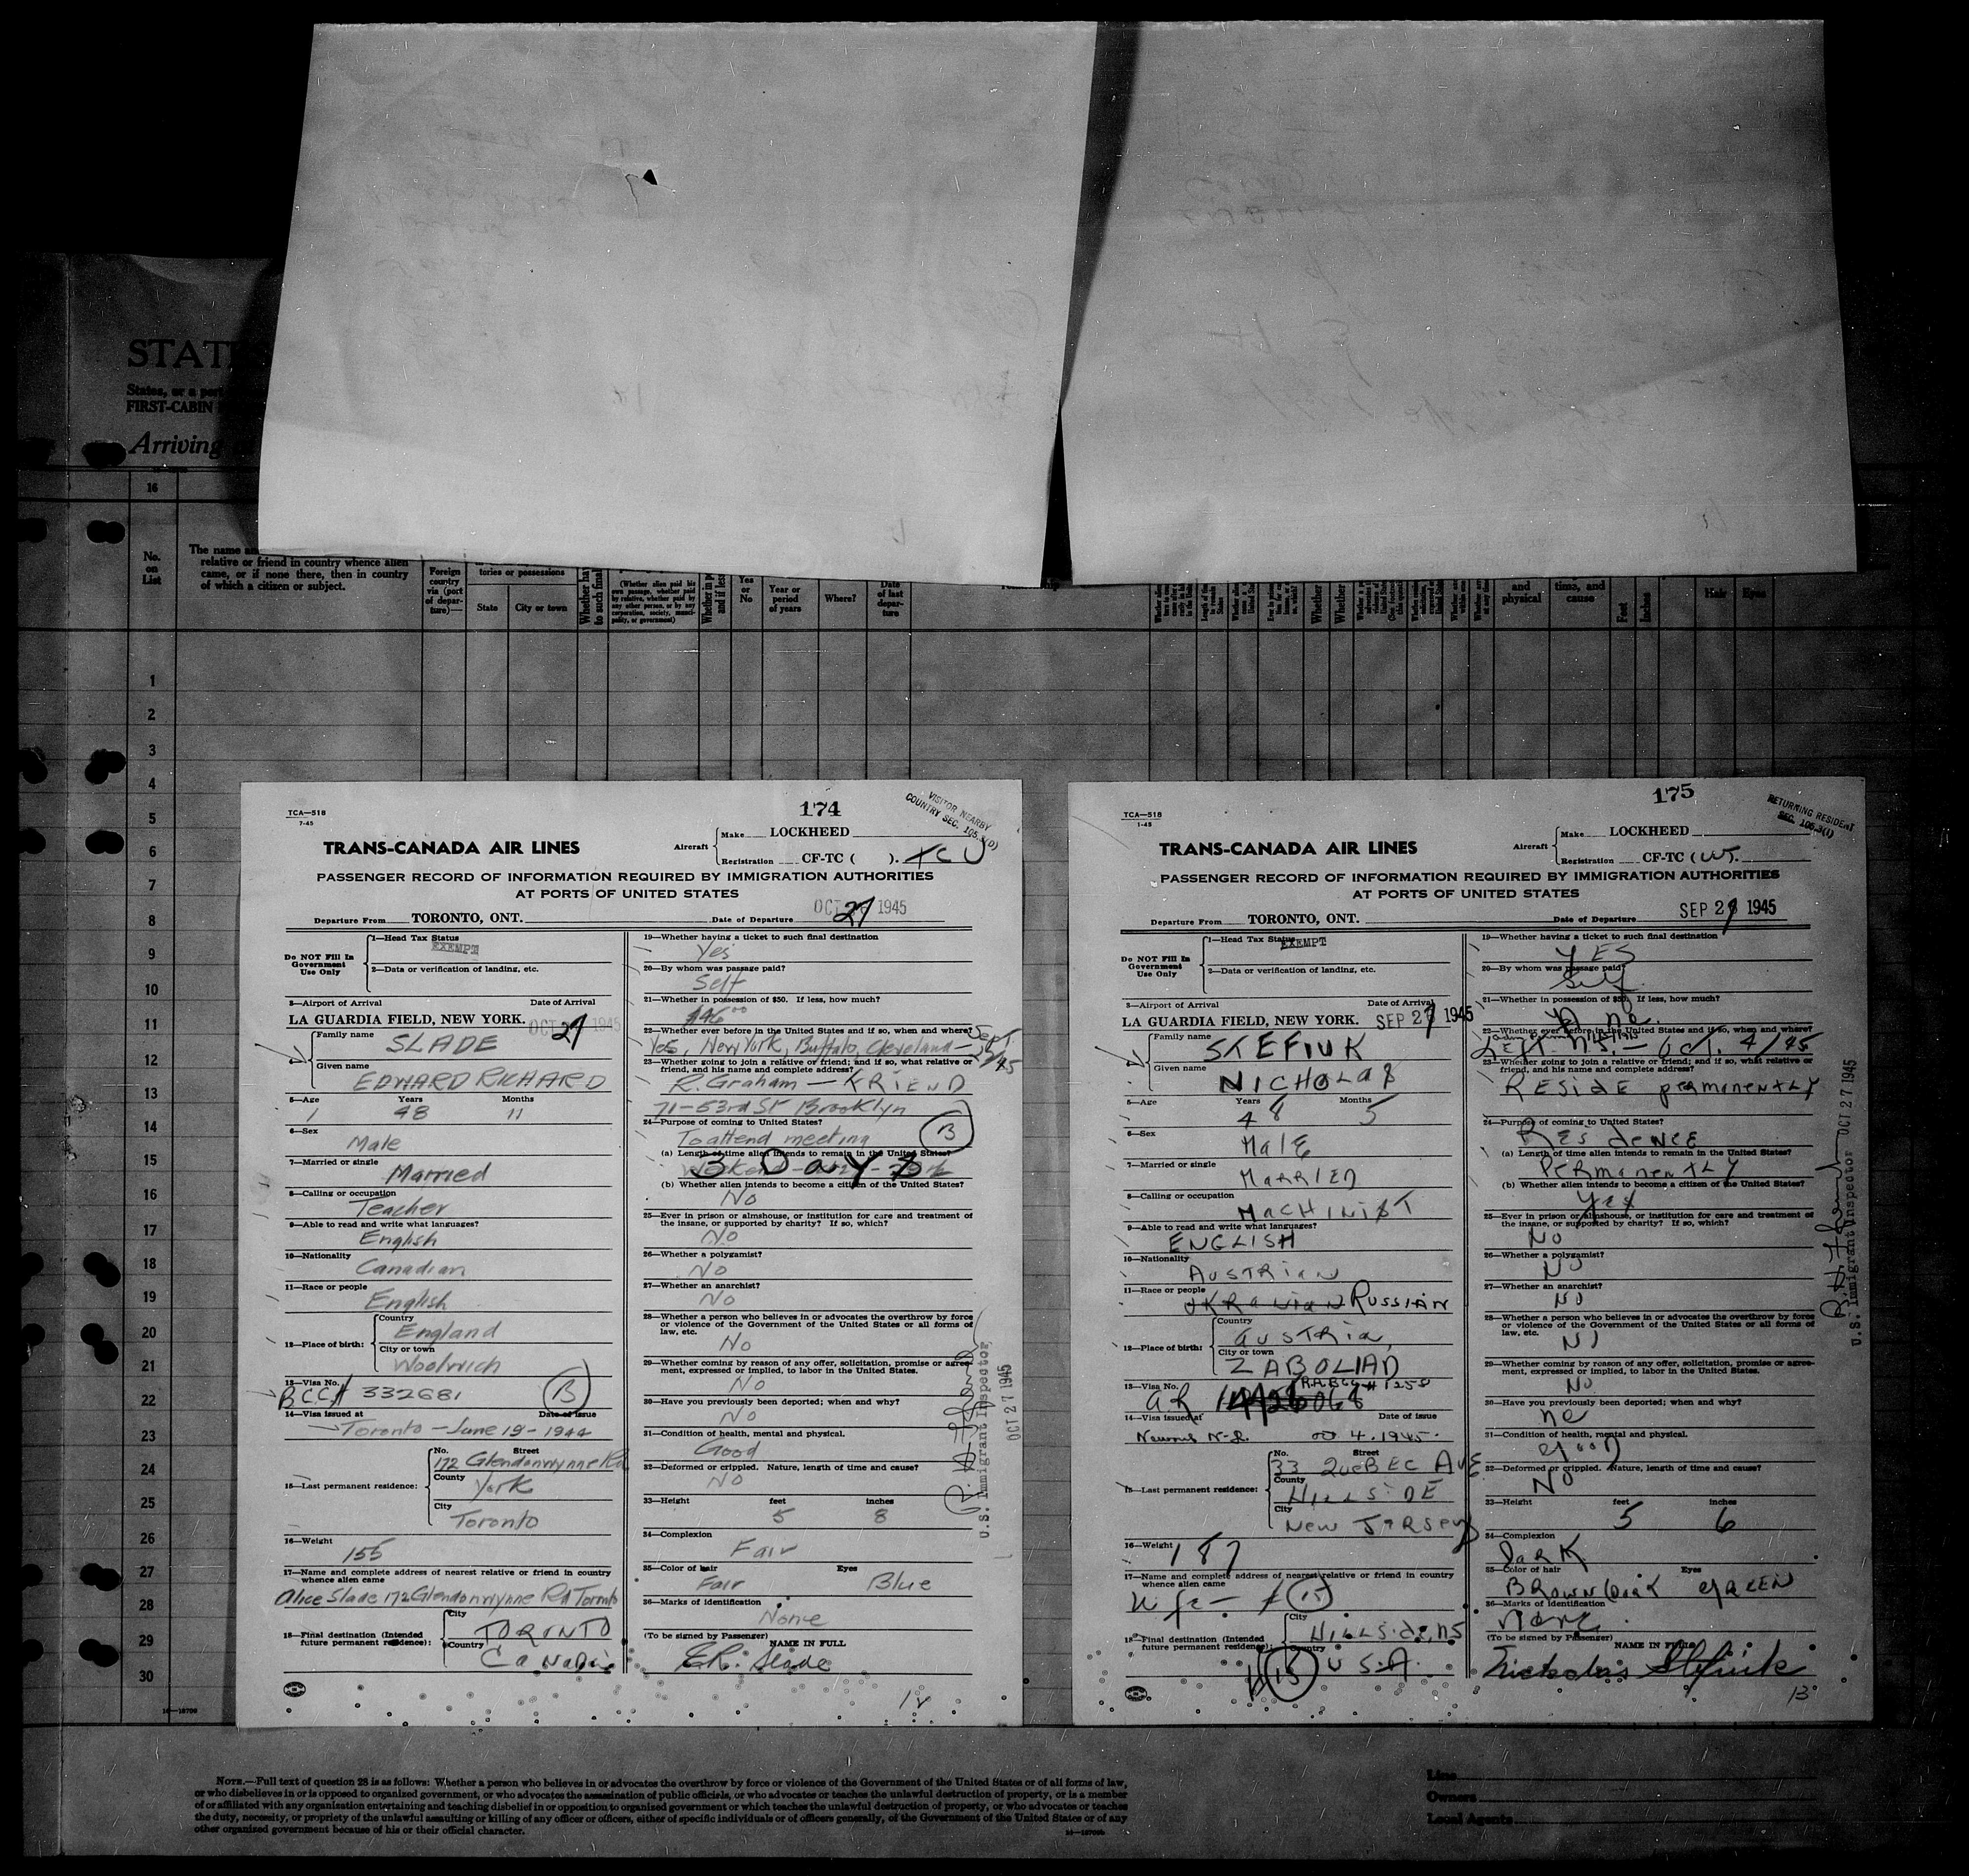 STAT
States, or a port
FIRST-CABIN
Arriving
16
No.
on
List
The name an
relative or friend in country whence alien
came, or if none there, then in country
of which a citizen or subject.
Foreign
country
via (port
of depar-
ture)—
tories or possessions
State
City or town
(Whether alien paid his
own passage, whether paid
by relative, whether paid by
any other person, or by any
corporation, society, munici-
pality, or government)
Yes
or
No
Year or
period
of years
Where?
Date
of last
depar-
ture
and
physical
time, and
cause
Feet
Inches
Hair
Eyes
1
2
3
4
5
6
7
8
9
10
11
12
13
14
15
16
17
18
19
20
21
22
23
24
25
26
27
28
29
30
TCA—518
7-45
174
VISITOR NEARBY
COUNTRY SEC. 105.3(D)
TRANS-CANADA AIR LINES
Aircraft
Make LOCKHEED
Registration CF-TC ( ). TCU
PASSENGER RECORD OF INFORMATION REQUIRED BY IMMIGRATION AUTHORITIES
AT PORTS OF UNITED STATES
Departure From TORONTO, ONT. Date of Departure OCT 27 1945
Do NOT Fill In
Government
Use Only
1—Head Tax Status
EXEMPT
2—Data or verification of landing, etc.
3—Airport of Arrival Date of Arrival
LA GUARDIA FIELD, NEW YORK. OCT 27 1945
Family name
SLADE
Given name
EDWARD RICHARD
5—Age Years Months
48 11
6—Sex
Male
7—Married or single
Married
8—Calling or occupation
Teacher
9—Able to read and write what languages?
English
10—Nationality
Canadian
11—Race or people
English
12—Place of birth:
Country
England
City or town
Woolwich
13—Visa No.
BCC# 332681 B
14—Visa issued at Date of issue
Toronto — June 19 - 1944
15—Last permanent residence:
No. Street
172 Glendonwynne Rd
County
York
City
Toronto
16—Weight
155
17—Name and complete address of nearest relative or friend in country
whence alien came
Alice Slade 172 Glendonwynne Rd Toronto
18—Final destination (Intended
future permanent residence):
City
TORONTO
Country
Canada
19—Whether having a ticket to such final destination
Yes
20—By whom was passage paid?
Self
21—Whether in possession of $50. If less, how much?
$46.00
22—Whether ever before in the United States and if so, when and where?
Yes, New York, Buffalo, Cleveland — Sept
23—Whether going to join a relative or friend; and if so, what relative or
friend, and his name and complete address?
R. Graham — FRIEND
71-53rd St Brooklyn
24—Purpose of coming to United States?
To attend meeting B
(a) Length of time alien intends to remain in the United States?
3 Days
(b) Whether alien intends to become a citizen of the United States?
No
25—Ever in prison or almshouse, or institution for care and treatment of
the insane, or supported by charity? If so, which?
No
26—Whether a polygamist?
No
27—Whether an anarchist?
No
28—Whether a person who believes in or advocates the overthrow by force
or violence of the Government of the United States or all forms of
law, etc.
No
29—Whether coming by reason of any offer, solicitation, promise or agree-
ment, expressed or implied, to labor in the United States?
No
30—Have you previously been deported; when and why?
No
31—Condition of health, mental and physical.
Good
32—Deformed or crippled. Nature, length of time and cause?
No
33—Height feet inches
5 8
34—Complexion
Fair
35—Color of hair Eyes
Fair Blue
36—Marks of identification
None
(To be signed by Passenger)
NAME IN FULL
E.R. Slade
12
U.S. Immigrant Inspector
OCT 27 1945
TCA—518
1-45
175
RETURNING RESIDENT
SEC. 105.3(I)
TRANS-CANADA AIR LINES
Aircraft
Make LOCKHEED
Registration CF-TC (W).
PASSENGER RECORD OF INFORMATION REQUIRED BY IMMIGRATION AUTHORITIES
AT PORTS OF UNITED STATES
Departure From TORONTO, ONT. Date of Departure SEP 27 1945
Do NOT Fill In
Government
Use Only
1—Head Tax Status
EXEMPT
2—Data or verification of landing, etc.
3—Airport of Arrival Date of Arrival
LA GUARDIA FIELD, NEW YORK. SEP 27 1945
Family name
STEFIUK
Given name
NICHOLAS
5—Age Years Months
48 5
6—Sex
Male
7—Married or single
MARRIED
8—Calling or occupation
MACHINIST
9—Able to read and write what languages?
ENGLISH
10—Nationality
AUSTRIAN
11—Race or people
RUSSIAN
12—Place of birth:
Country
AUSTRIA
City or town
ZABOLIAD
13—Visa No.
AR
14—Visa issued at Date of issue
4. 1945.
15—Last permanent residence:
No. Street
33 QUEBEC AVE
County
HILLSIDE
City
New Jersey
16—Weight
187
17—Name and complete address of nearest relative or friend in country
whence alien came
Wife — 15
18—Final destination (Intended
future permanent residence):
City
HILLSIDE, NJ
Country
U.S.A.
15
19—Whether having a ticket to such final destination
YES
20—By whom was passage paid?
Self
21—Whether in possession of $50. If less, how much?
no.
22—Whether ever before in the United States and if so, when and where?
Left N.J. — Oct. 4/45
23—Whether going to join a relative or friend; and if so, what relative or
friend, and his name and complete address?
RESIDE permanently
24—Purpose of coming to United States?
Residence
(a) Length of time alien intends to remain in the United States?
Permanently
(b) Whether alien intends to become a citizen of the United States?
Yes
25—Ever in prison or almshouse, or institution for care and treatment of
the insane, or supported by charity? If so, which?
No
26—Whether a polygamist?
No
27—Whether an anarchist?
No
28—Whether a person who believes in or advocates the overthrow by force
or violence of the Government of the United States or all forms of
law, etc.
No
29—Whether coming by reason of any offer, solicitation, promise or agree-
ment, expressed or implied, to labor in the United States?
No
30—Have you previously been deported; when and why?
no
31—Condition of health, mental and physical.
good
32—Deformed or crippled. Nature, length of time and cause?
No
33—Height feet inches
5 6
34—Complexion
Dark
35—Color of hair Eyes
BROWN Dark GREEN
36—Marks of identification
None.
(To be signed by Passenger)
NAME IN FULL
Nickolas Stefiuk
13
U.S. Immigrant Inspector OCT 27 1945
16—18706
NOTE.—Full text of question 28 is as follows: Whether a person who believes in or advocates the overthrow by force or violence of the Government of the United States or of all forms of law,
or who disbelieves in or is opposed to organized government, or who advocates the assassination of public officials, or who advocates or teaches the unlawful destruction of property, or is a member
of or affiliated with any organization entertaining and teaching disbelief in or opposition to organized government or which teaches the unlawful destruction of property, or who advocates or teaches
the duty, necessity, or propriety of the unlawful assaulting or killing of any officer or officers, either of specific individuals or of officers generally, of the Government of the United States or of any
other organized government because of his or their official character.
Line
Owners
Local Agents